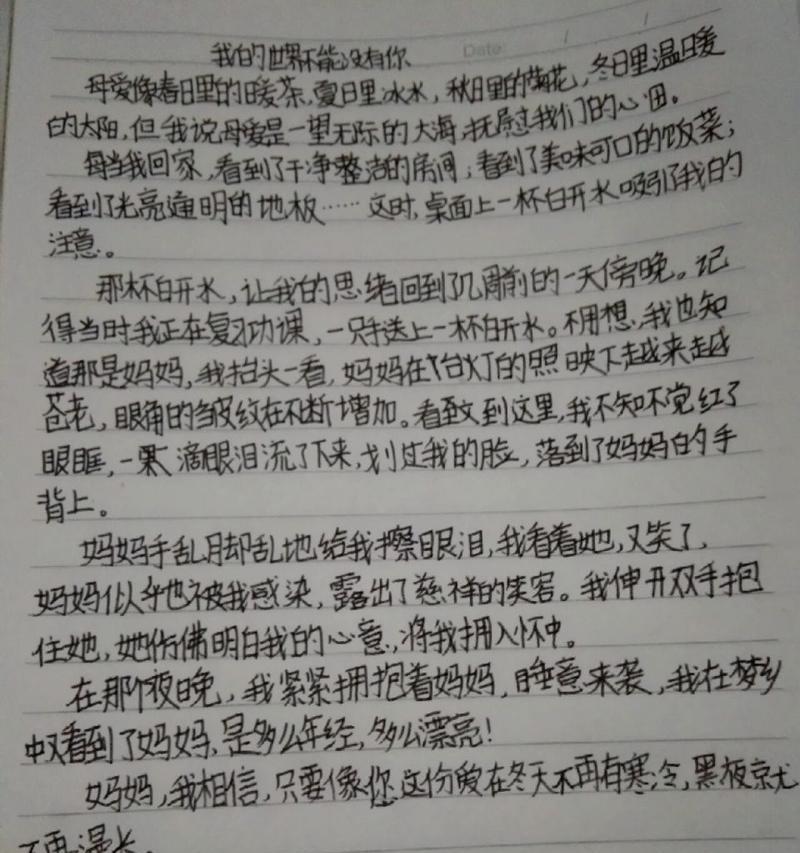 我的世界不能没有你
Date: / /
母爱像春日里的暖茶,夏日里冰水,秋日里的菊花,冬日里温暖
的太阳,但我说母爱是一望无际的大海,抚慰过我们的心田。
每当我回家,看到了干净整洁的房间;看到了美味可口的饭菜;
看到了光亮通明的地板……这时,桌面上一杯白开水吸引了我的
注意。
那杯白开水,让我的思绪回到了几周前的一天傍晚。记
得当时我正在复习功课,一只手送上一杯白开水。不用想,我也知
道那是妈妈,我抬头一看,妈妈在台灯的照映下越来越
苍老,眼角的皱纹在不断增加。看到这里,我不知不觉红了
眼眶,一滴眼泪流了下来,划过我的脸,落到了妈妈的手
背上。
妈妈手乱脚乱地给我擦眼泪,我看着她,又笑了,
妈妈似乎也被我感染,露出了慈祥的笑容。我伸开双手抱
住她,她仿佛明白我的心意,将我拥入怀中。
在那个夜晚,我紧紧拥抱着妈妈,睡意来袭,我在梦乡
中又看到了妈妈,是多么年经,多么漂亮!
妈妈,我相信,只要像您这份爱在冬天不再有寒冷,黑板就
不再漫长。